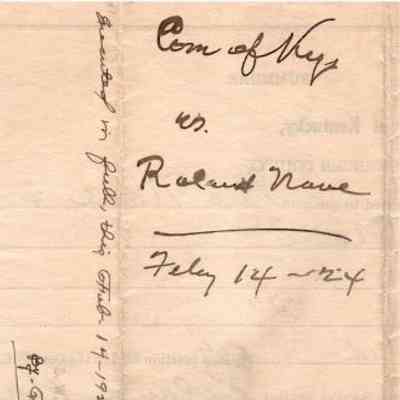 Com of Ky,
vs.
Roland Nave
Feby 14 - 24
Executed in full, this Feb 14-192
By.
Kentucky,